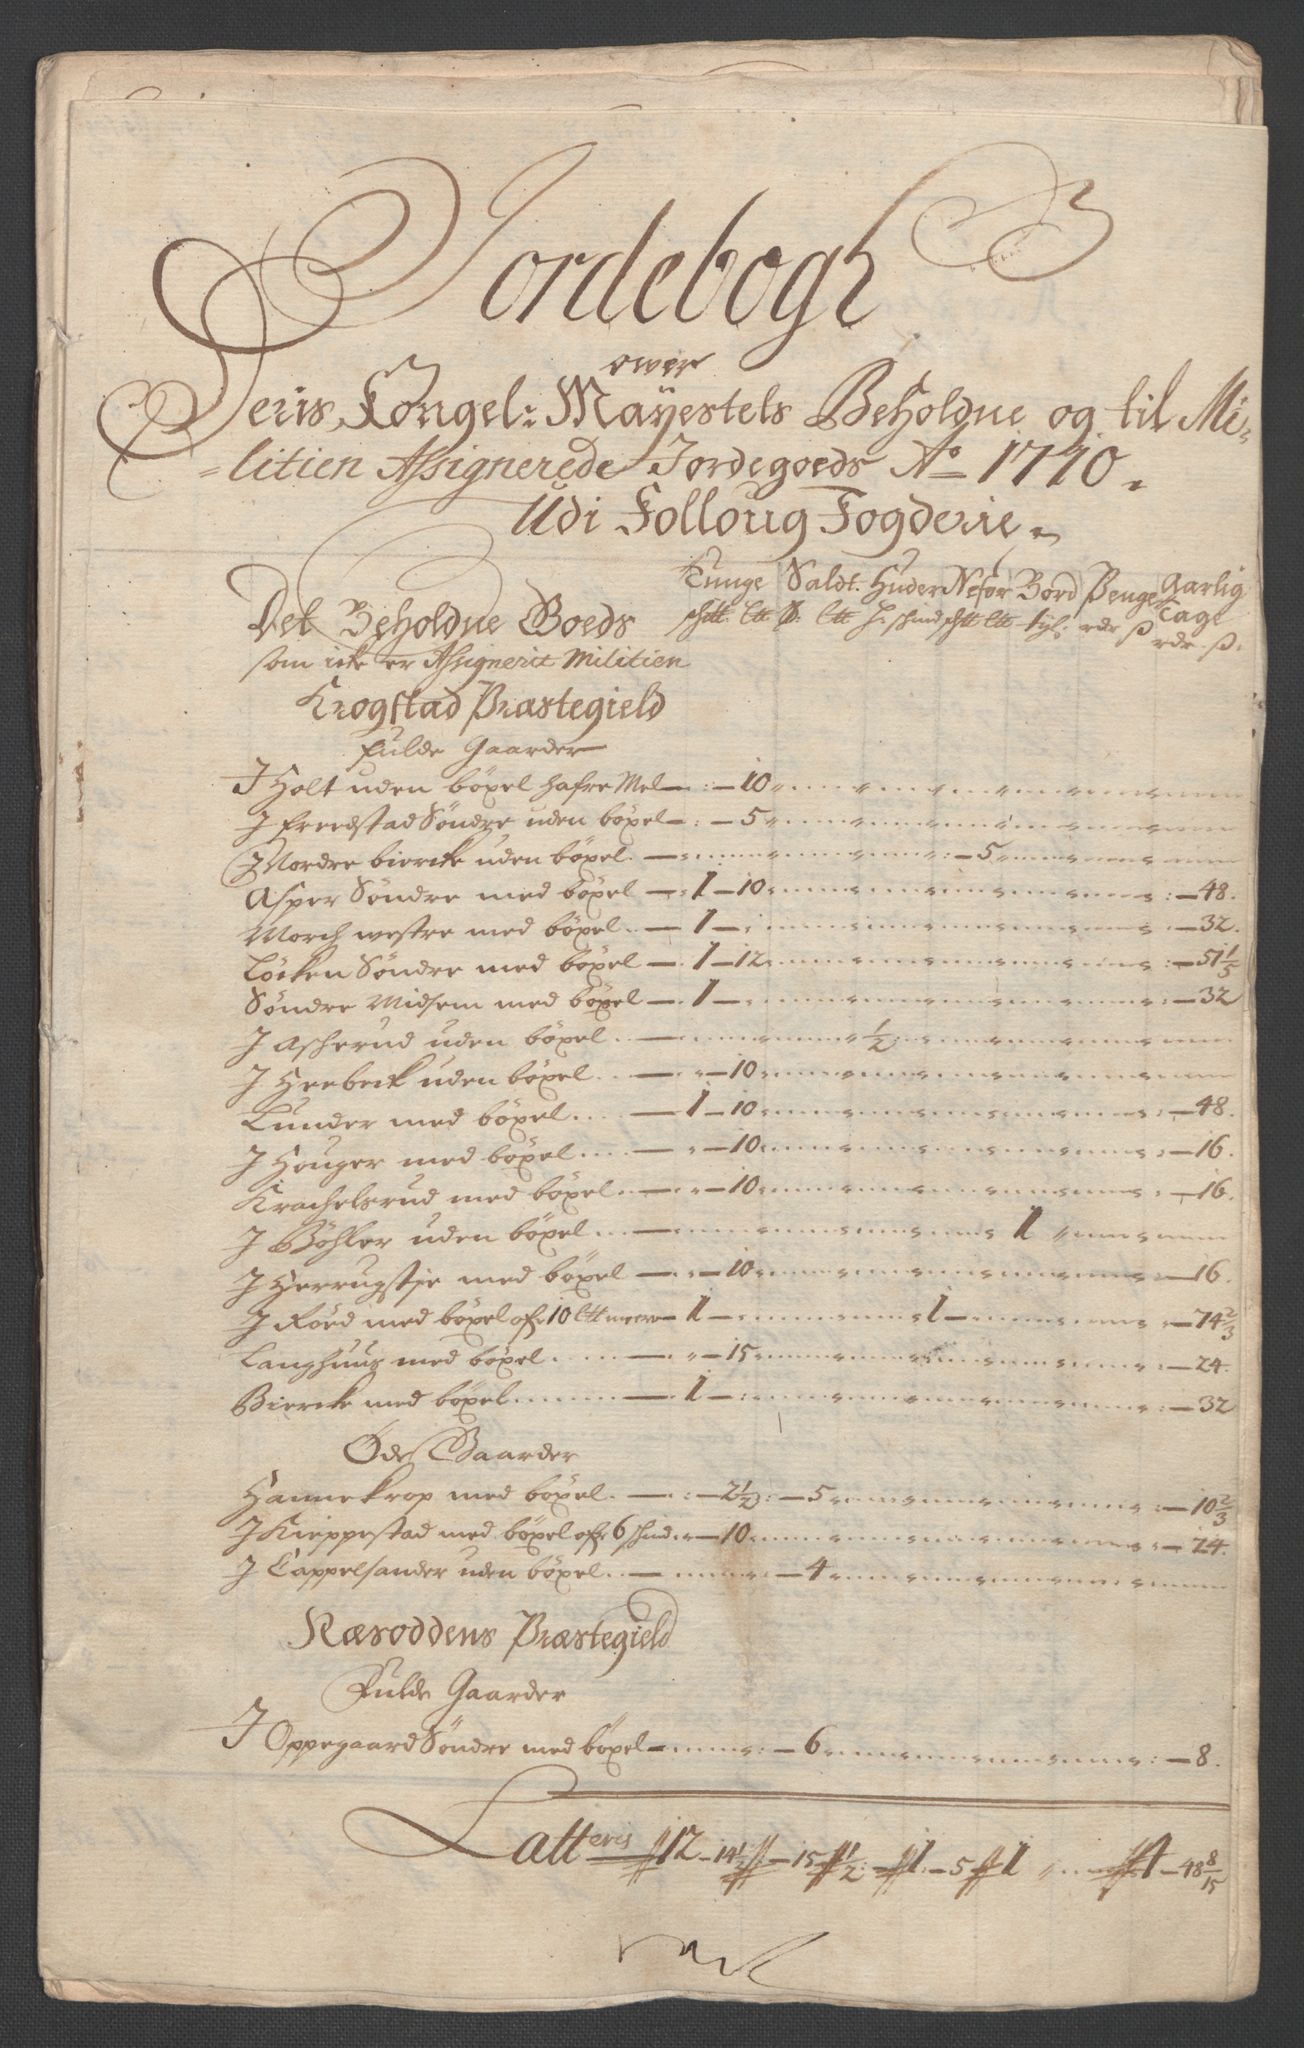 Jordebogh
ower
Deris Kongel: Mayestets Beholdne og til Mi-
litien Assignerede Jordegoeds Ao 1710.
Udi Folloug Fogderie.
Tunge Saldt. Huder Nefor Bord Penge Aarlig
Tage
Det Beholdne Goeds
som icke er Assignerit Militien
Krogstad Præstegield
Fulde Gaarder
J Holt uden böxel hafre Mel - 10
J Freedstad Söndre uden böxel - 5
J Nordre biercke uden böxel - 5
Asper Söndre med böxel - 1 - 10 - 48.
Morch westre med böxel - 1 - 32.
Löcken Söndre med böxel - 1 - 12 - 51 1/5
Söndre Midsem med böxel - 1 - 32
J Ascherud uden böxel - 1/2
J Heebeck uden böxel - 10
Lunder med böxel - 1 - 10 - 48.
J Houger med böxel - 10 - 16.
Krachelsrud med böxel - 10 - 16.
J Böhler uden böxel - 1
J Herrugstje med böxel - 10 - 16.
J Röed med böxel ofr 10 ltt meere - 1 - 1 - 74 2/3
Langhuus med böxel - 15 - 24.
Biercke med böxel - 1 - 32
Öde Gaarder
Hannekrop med böxel - 2 1/2 - 5 - 10 2/3
J Kieppestad med böxel ofr 6 skind - 10 - 24.
J Cappelsander uden böxel - 4
Næsoddens Præstegield
Fulde Gaarder
J Oppegaard Söndre med böxel - 6 - 8.
Latteris 12 - 14 1/2 - 15 1/2 - 1 - 5 1 - 48 8/15